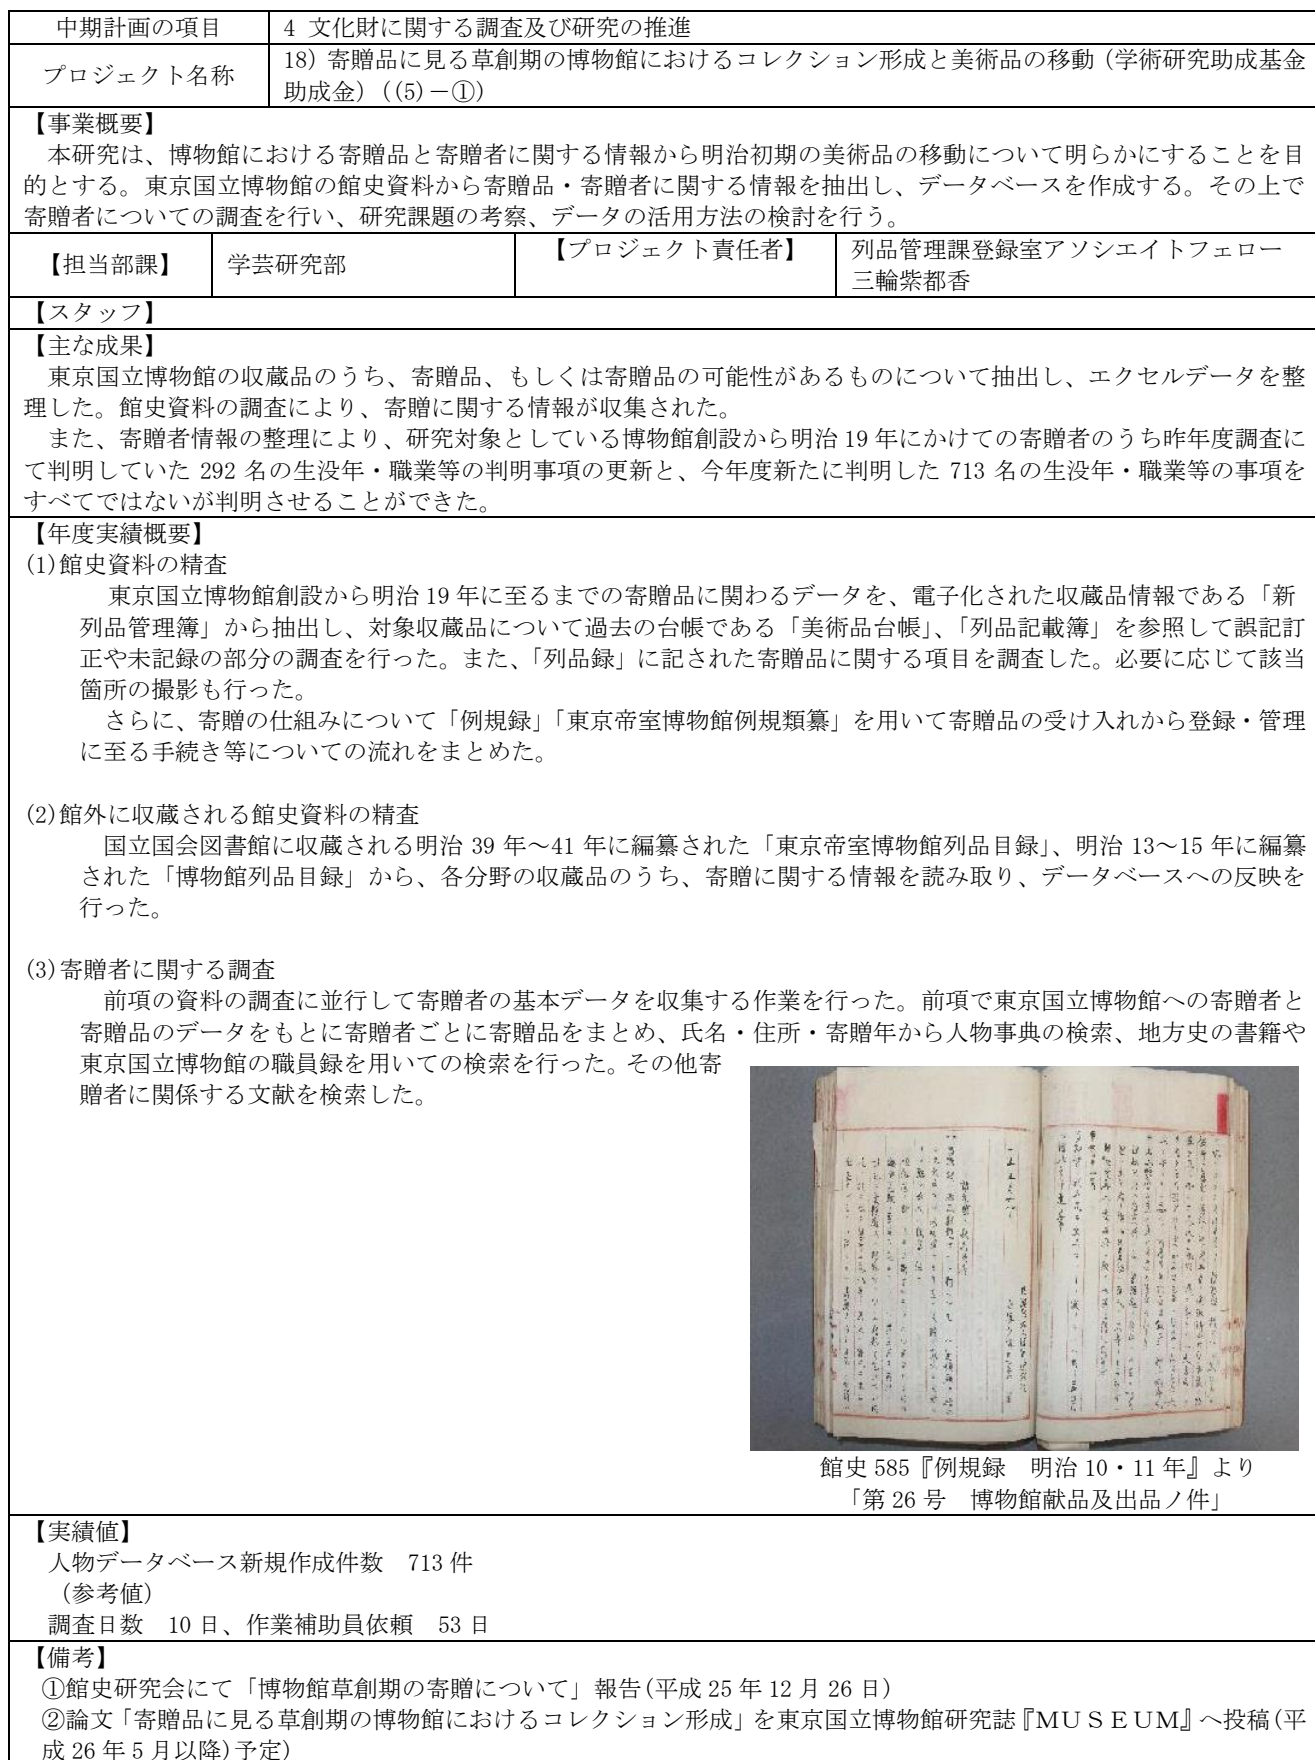 中期計画の項目
4 文化財に関する調査及び研究の推進
プロジェクト名称
18) 寄贈品に見る草創期の博物館におけるコレクション形成と美術品の移動（学術研究助成基金
助成金）((5)－①)
【事業概要】
本研究は、博物館における寄贈品と寄贈者に関する情報から明治初期の美術品の移動について明らかにすることを目
的とする。東京国立博物館の館史資料から寄贈品・寄贈者に関する情報を抽出し、データベースを作成する。その上で
寄贈者についての調査を行い、研究課題の考察、データの活用方法の検討を行う。
【担当部課】
学芸研究部
【プロジェクト責任者】
列品管理課登録室アソシエイトフェロー
三輪紫都香
【スタッフ】
【主な成果】
東京国立博物館の収蔵品のうち、寄贈品、もしくは寄贈品の可能性があるものについて抽出し、エクセルデータを整
理した。館史資料の調査により、寄贈に関する情報が収集された。
また、寄贈者情報の整理により、研究対象としている博物館創設から明治 19 年にかけての寄贈者のうち昨年度調査に
て判明していた 292 名の生没年・職業等の判明事項の更新と、今年度新たに判明した 713 名の生没年・職業等の事項を
すべてではないが判明させることができた。
【年度実績概要】
(1)館史資料の精査
東京国立博物館創設から明治 19 年に至るまでの寄贈品に関わるデータを、電子化された収蔵品情報である「新
列品管理簿」から抽出し、対象収蔵品について過去の台帳である「美術品台帳」、「列品記載簿」を参照して誤記訂
正や未記録の部分の調査を行った。また、「列品録」に記された寄贈品に関する項目を調査した。必要に応じて該当
箇所の撮影も行った。
さらに、寄贈の仕組みについて「例規録」「東京帝室博物館例規類纂」を用いて寄贈品の受け入れから登録・管理
に至る手続き等についての流れをまとめた。
(2)館外に収蔵される館史資料の精査
国立国会図書館に収蔵される明治 39 年～41 年に編纂された「東京帝室博物館列品目録」、明治 13～15 年に編纂
された「博物館列品目録」から、各分野の収蔵品のうち、寄贈に関する情報を読み取り、データベースへの反映を
行った。
(3)寄贈者に関する調査
前項の資料の調査に並行して寄贈者の基本データを収集する作業を行った。前項で東京国立博物館への寄贈者と
寄贈品のデータをもとに寄贈者ごとに寄贈品をまとめ、氏名・住所・寄贈年から人物事典の検索、地方史の書籍や
東京国立博物館の職員録を用いての検索を行った。その他寄
贈者に関係する文献を検索した。
館史 585『例規録　明治 10・11 年』より
「第 26 号　博物館献品及出品ノ件」
【実績値】
人物データベース新規作成件数　713 件
（参考値）
調査日数　10 日、作業補助員依頼　53 日
【備考】
①館史研究会にて「博物館草創期の寄贈について」報告(平成 25 年 12 月 26 日)
②論文「寄贈品に見る草創期の博物館におけるコレクション形成」を東京国立博物館研究誌『MUSEUM』へ投稿(平
成 26 年 5 月以降)予定)